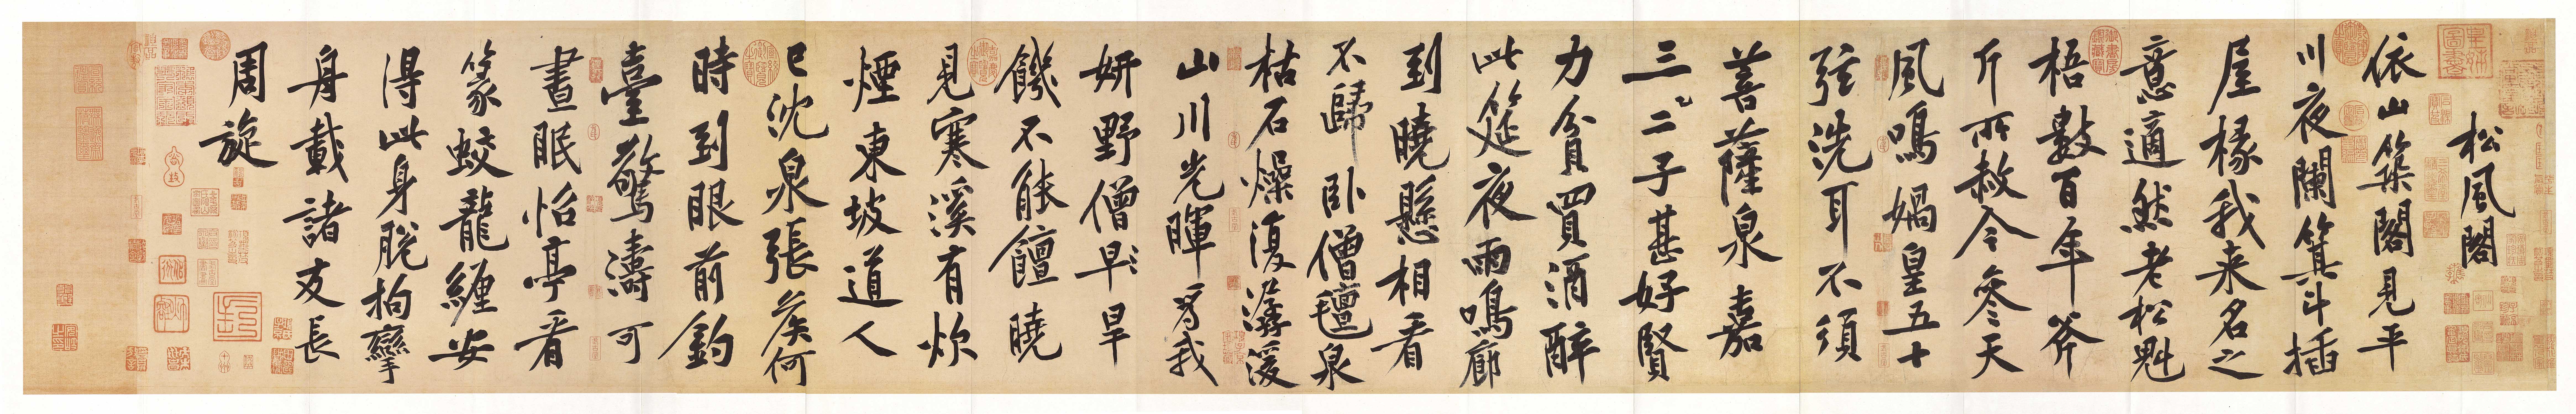 松風閣
依山築閣見平
川夜闌箕斗插
屋椽我来名之
意適然老松魁
梧數百年斧
斤所赦今參天
風鳴媧皇五十
弦洗耳不須
菩薩泉嘉
三二子甚好賢
力貧買酒醉
此筵夜雨鳴廊
到曉懸相看
不歸卧僧氊泉
枯石燥復潺湲
山川光暉為我
妍野僧早旱
饑不能饘曉
見寒溪有炊
煙東坡道人
已沈泉張侯何
時到眼前釣
臺驚濤可
晝眠怡亭看
篆蛟龍纏安
得此身脫拘攣
舟載諸友長
周旋